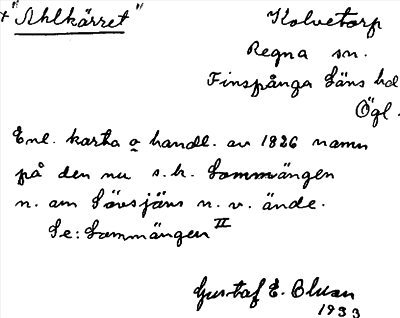 + "Ahlkärret"
Kolvetorp
Regna sn.
Finspånga läns hd
Ögl.
Enl. karta o handl. av 1826 namn
på den nu s.k. Sammängen
n. om Lövsjöns n. v. ände.
Se: Sammängen II
Gustaf E.
1933